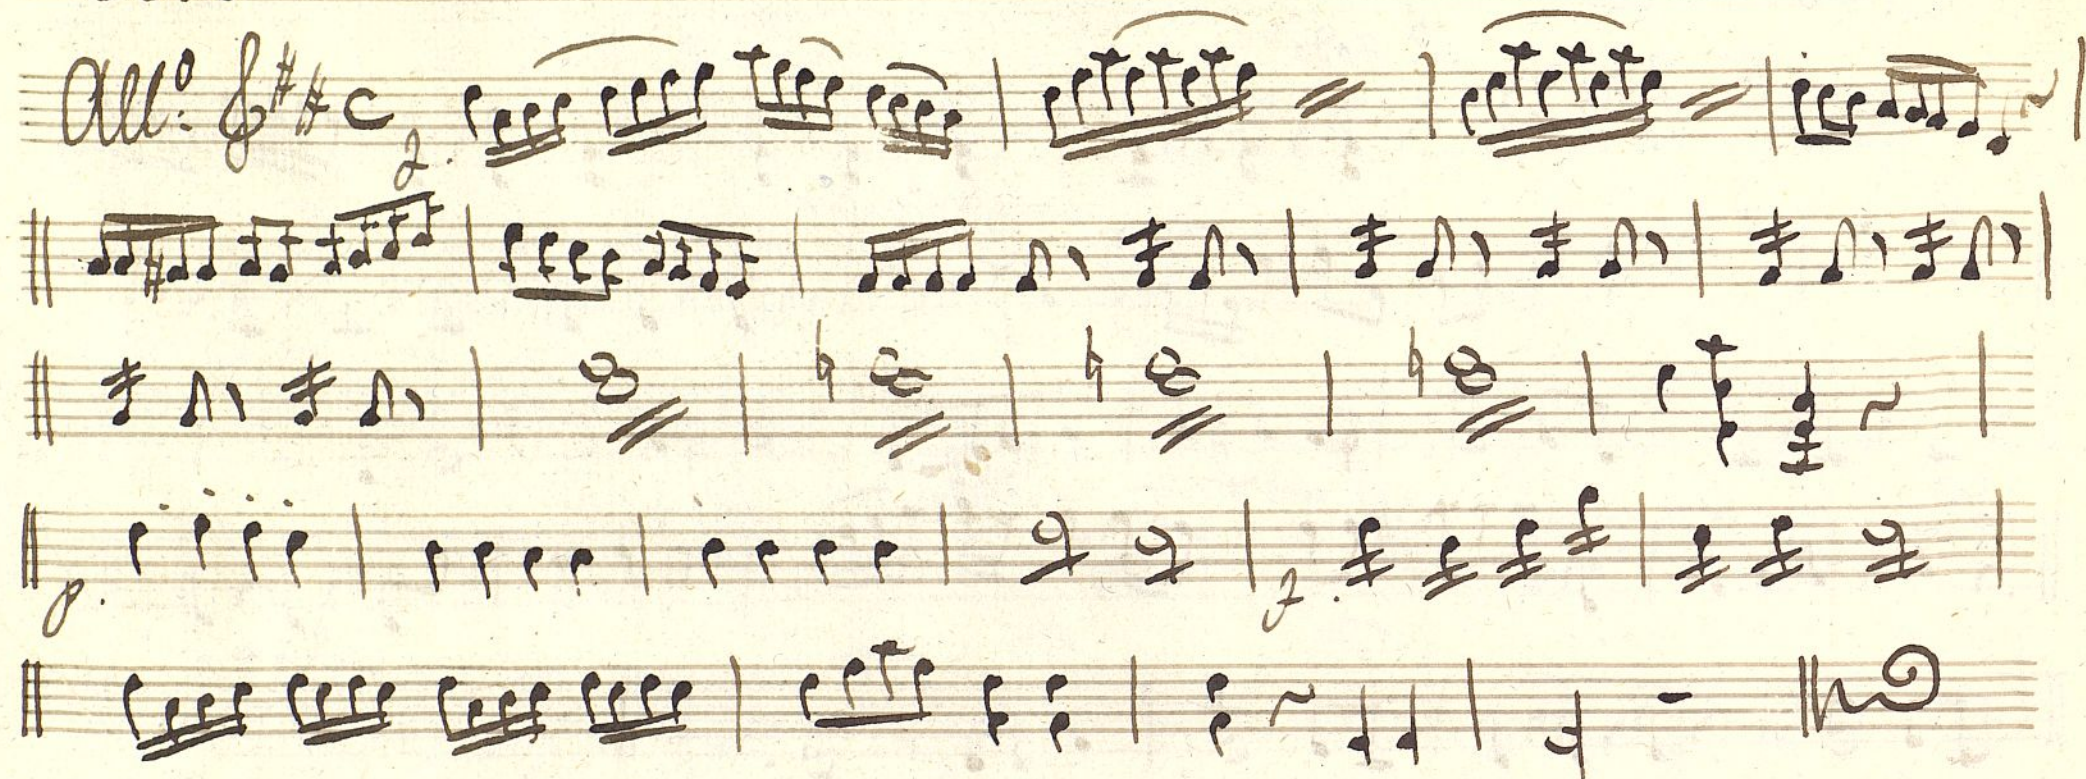 All.º
f.
p.
f.